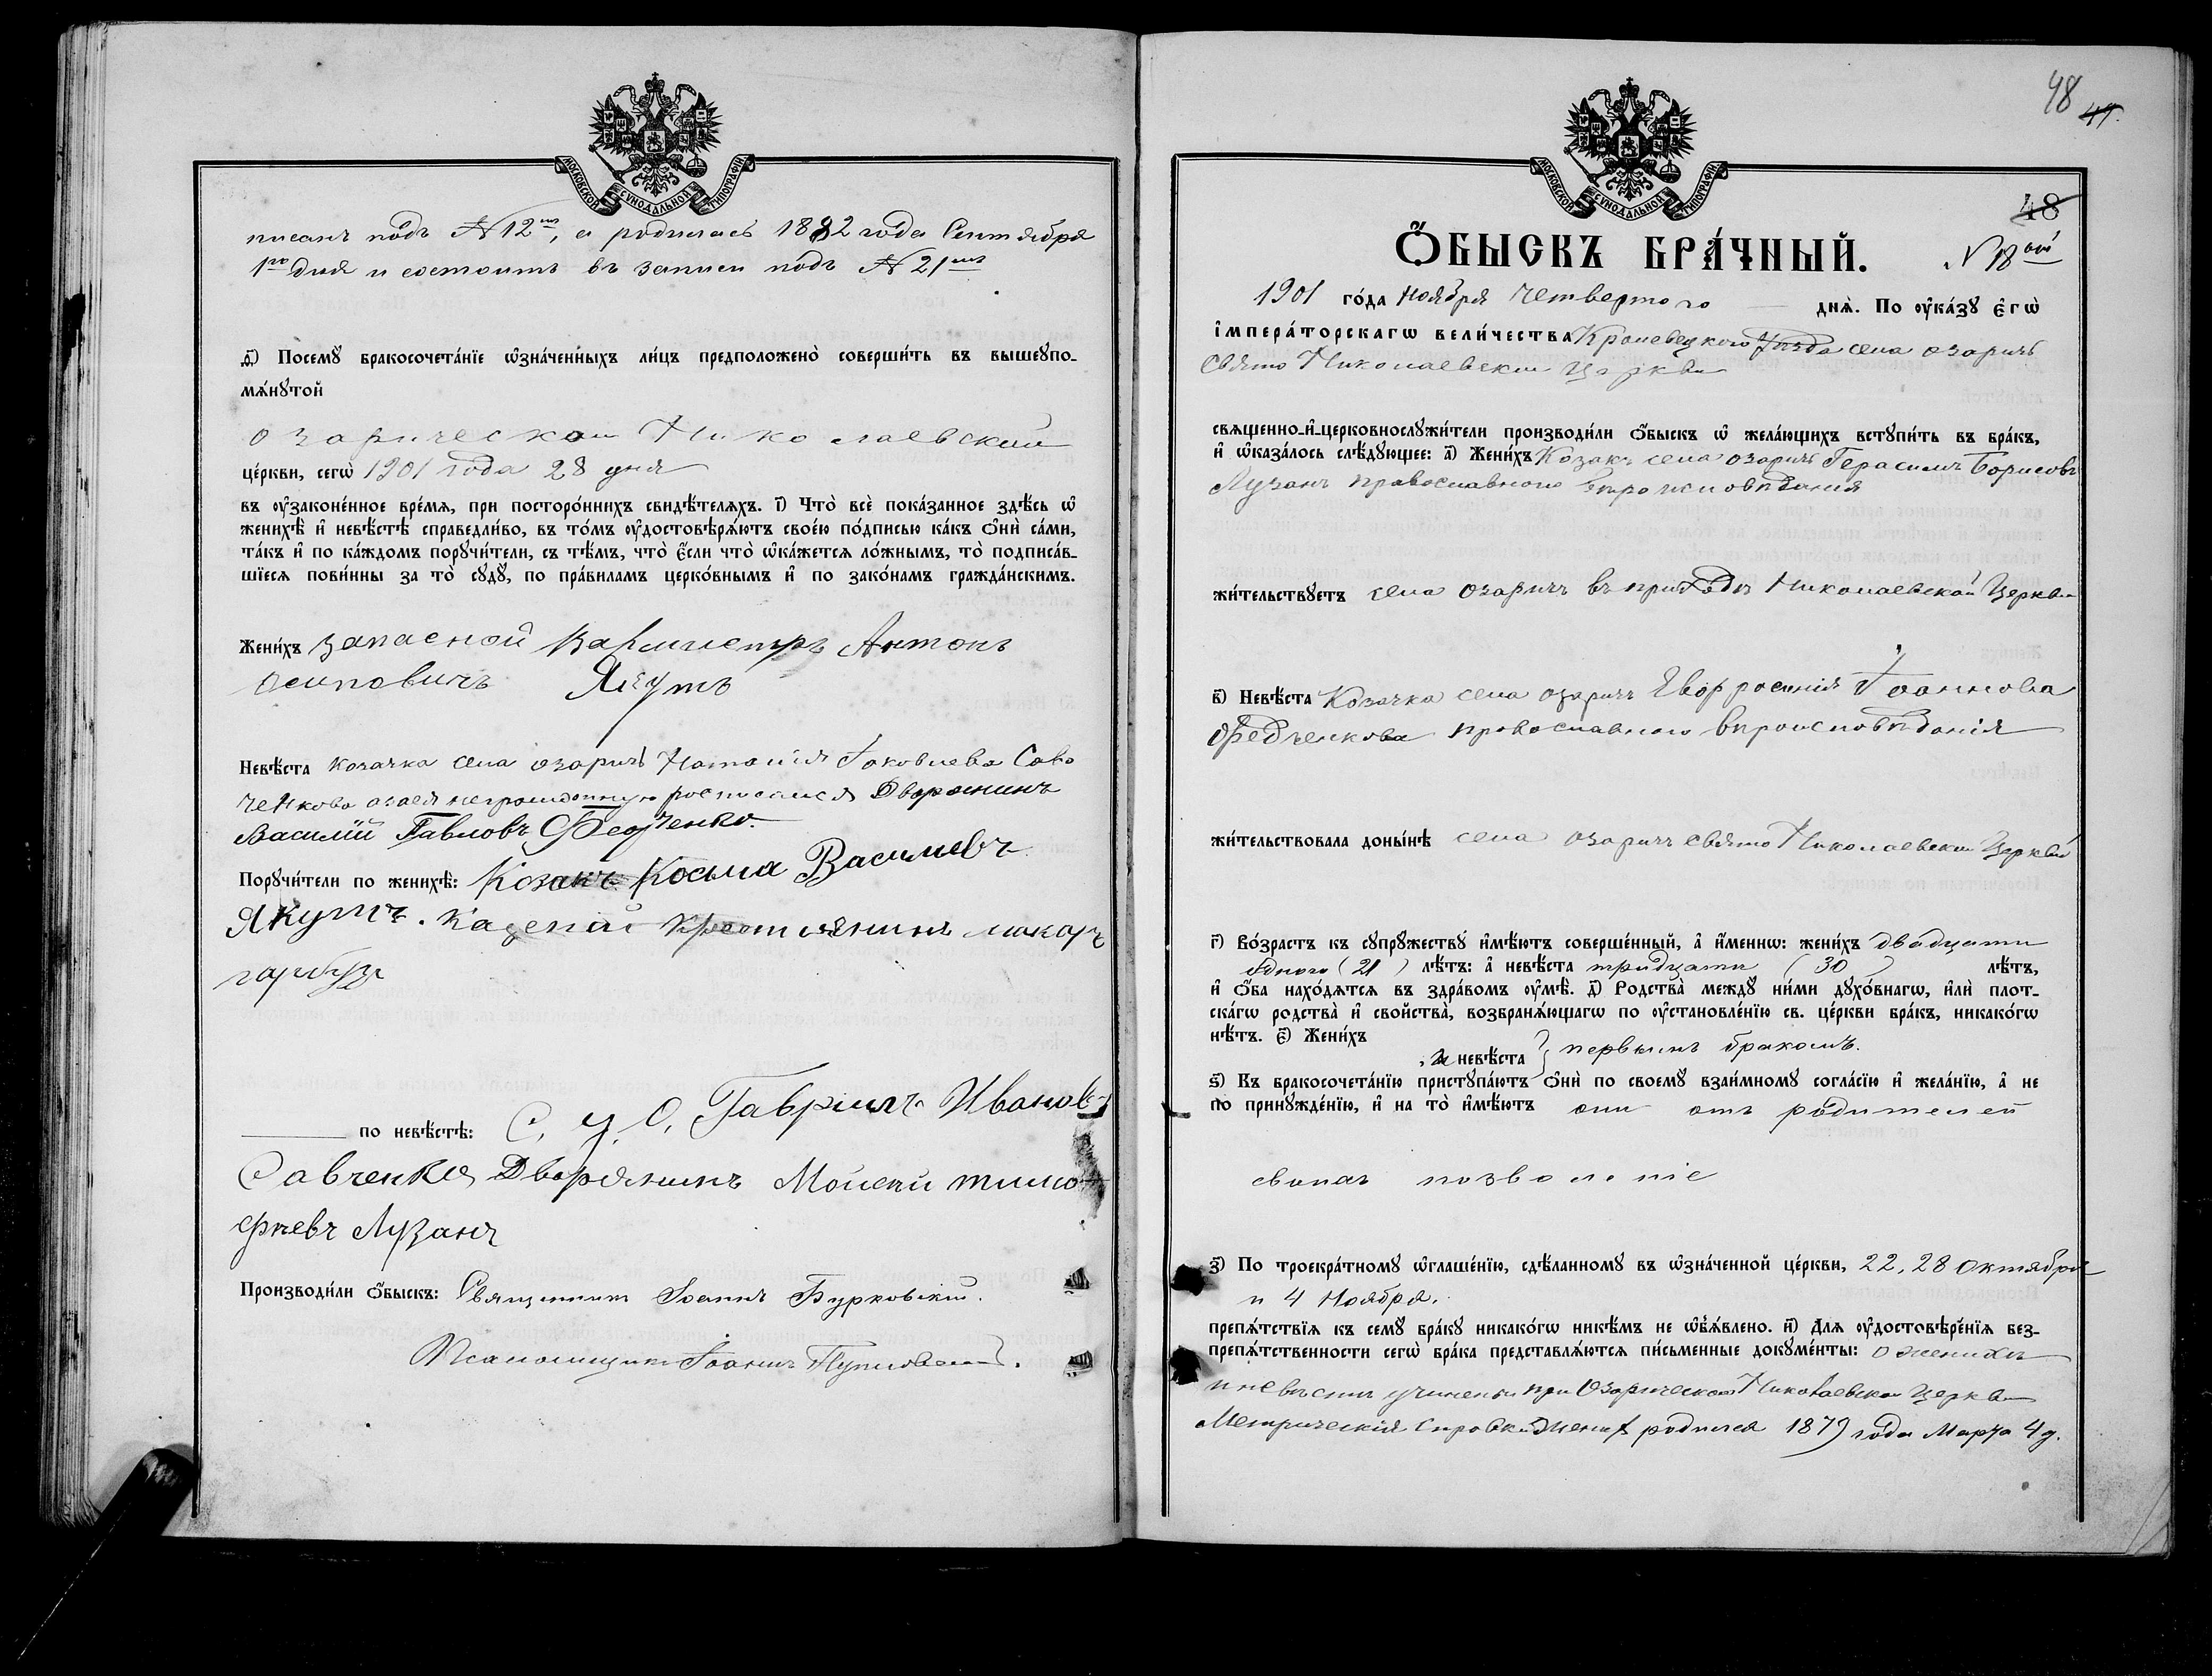 МОСКОВСКОЙ СУНОДАЛЬНОЙ ТИПОГРАФІИ
писанъ подъ №12мъ, а родилась 1882 года Сентября
1го дня и состоитъ въ записи подъ №21мъ
ѳ҃) Посемꙋ бракосочета́нїе ѡ҆зна́ченныхъ ли́цъ предположено̀ соверши́ть въ вышеꙋпо-
мѧ́нꙋтой
озарической Николаевской
це́ркви, сегѡ̀ 1901 года 28 дня
въ оу҆законе́нное вре́мѧ, при посторо́ннихъ свидѣ́телѧхъ. і҃) Что̀ всѐ пока́занное здѣ́сь ѡ҆
женихѣ̀ и҆ невѣ́стѣ справедли́во, въ то́мъ оу҆достовѣрѧ́ютъ свое́ю по́дписью ка́къ ѻ҆нѝ са́ми,
та́къ и҆ по ка́ждомъ порꙋчи́тели, съ тѣ́мъ, что̀ є҆́сли что̀ ѡ҆ка́жетсѧ ло́жнымъ, то̀ подписа́в-
шїесѧ пови́нны за то̀ сꙋдꙋ̀, по пра́виламъ церко́внымъ и҆ по зако́намъ гражда́нскимъ.
Жени́хъ запасной Вахмистръ Антонъ
Осиповичъ Якутъ
Невѣ́ста козачка села озаричъ Наталія Іаковлева Сав
ченкова росписался Дворянинъ
Василій Павловъ Федченко.
Порꙋчи́тели по женихѣ̀: Козакъ Косьма Васильевъ
Якутъ. Казеный Крестиянинъ макаръ
гарбуз
по невѣ́стѣ: С. У. О. Гавриилъ Ивановъ
Савченко, Дворянинъ Мойсей тимо
феевъ Лузанъ
Производи́ли ѻ҆́быскъ: Священникъ Іоаннъ Бурковскій.
Псаломщикъ Іоаннъ
48 47.
МОСКОВСКОЙ СУНОДАЛЬНОЙ ТИПОГРАФІИ
48
Ѻ҆́БЫСКЪ БРА́ЧНЫЙ. №18ой
1901 го́да Ноября Четвертого днѧ̀. По оу҆ка́зꙋ є҆гѡ̀
і҆мпера́торскагѡ вели́чества Кролевецкого Уезда села озаричъ
Свято Николаевской Церкви
свѧщенно-и҆-церковнослꙋжи́тели производи́ли ѻ҆́быскъ ѡ҆ жела́ющихъ встꙋпи́ть въ бра́къ,
и҆ ѡ҆каза́лось слѣ́дꙋющее: а҃) Жени́хъ Козакъ села озаричъ Герасимъ Борисовъ
Лузанъ православного вѣроисповѣданія
жи́тельствꙋетъ села озаричъ въ приходѣ Николаевской Церкви
в҃) Невѣ́ста Козачка села озаричъ Евфросинія Іоаннова
Федченкова православного вѣроисповѣданія
жи́тельствовала доны́нѣ села озаричъ свято Николаевской Церкви
г҃) Во́зрастъ къ сꙋпрꙋ́жествꙋ и҆мѣ́ютъ соверше́нный, а҆ и҆́меннѡ: жени́хъ двадцати
одного (21) лѣ́тъ: а҆ невѣ́ста тридцати (30) лѣ́тъ,
и҆ ѻ҆́ба нахо́дѧтсѧ въ здра́вомъ оу҆мѣ̀. д҃) Родства̀ междꙋ̀ ни́ми дꙋхо́внагѡ, и҆лѝ плот-
ска́гѡ родства̀ и҆ сво́йства̀, возбранѧ́ющагѡ по оу҆становле́нїю св. це́ркви бра́къ, никако́гѡ
нѣ́тъ. є҃) Жени́хъ
и невѣ́ста } первымъ бракомъ.
ѕ҃) Въ бракосочета́нїю пристꙋпа́ютъ ѻ҆нѝ по своемꙋ̀ взаи́мномꙋ согла́сїю и҆ жела́нїю, а҆ не
по принꙋжде́нїю, и҆ на то̀ и҆мѣ́ютъ они отъ родителей
своихъ позволеніе
з҃) По троекра́тномꙋ ѡ҆глаше́нїю, сдѣ́ланномꙋ въ ѡ҆зна́ченной це́ркви, 22, 28 Октября
и 4 Ноября.
препѧ́тствїѧ къ семꙋ̀ бра́кꙋ никако́гѡ никѣ́мъ не ѡ҆б̾ѧ́влено. и҃) Длѧ оу҆достовѣре́нїѧ без-
препѧ́тственности сегѡ̀ бра́ка представлѧ́ютсѧ пи́сьменные докꙋме́нты: о женихѣ
и невѣстѣ учинены при Озарической Николаевской Церкви
Метрическія справки женихъ родился 1879 года Марта 4 д.